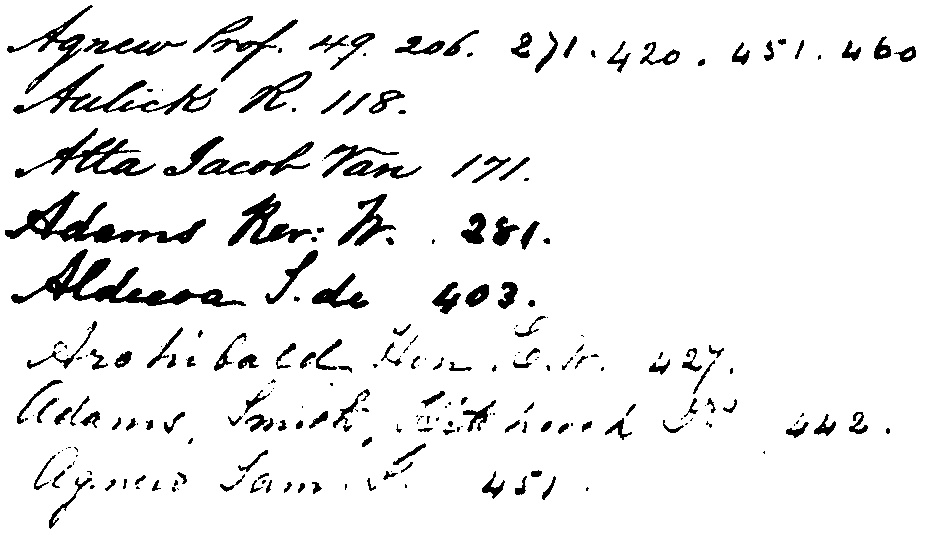 Agnew Prof. 49. 206. 271. 420. 451. 460
Aulick R. 118.
Atta Jacob Van 171.
Adams Rev: W. 281.
Aldecoa S. de 403.
Archibald Hon. E.W. 427.
Adams, Smith, 442.
Agnew Sam. 451.